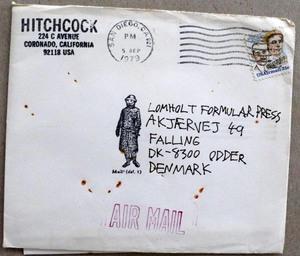 HITCHCOCK
224 C AVENUE
CORONADO, CALIFORNIA
92118 USA
SAN DIEGO, CA
PM
5 SEP
1979
USAirmail 31c
LOMHOLT FORMULAR PRESS
AKJÆRVEJ 49
FALLING
DK-8300 ODDER
DENMARK
Mail* (def. 1)
AIR MAIL